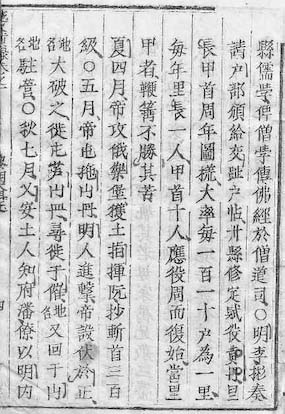 縣儒學傳僧學傳佛經於僧道司〇明李彬奏
請户部頒給交趾户帖州縣修定賦役黄冊里
長甲首周年圖㨫大率每一百一十户為一里
每年里長一人甲首十人應役周而復始當里
甲者鞭箠不勝其苦
夏四月帝攻餓樂堡獲土指揮阮抄斬首三百
級〇五月帝屯拖山冊明人進擊帝設伏 正
地名大破之徙屯芒山冊尋徙于催地名又回于山
地名駐營〇秋七月乂安土人知府潘僚以明内